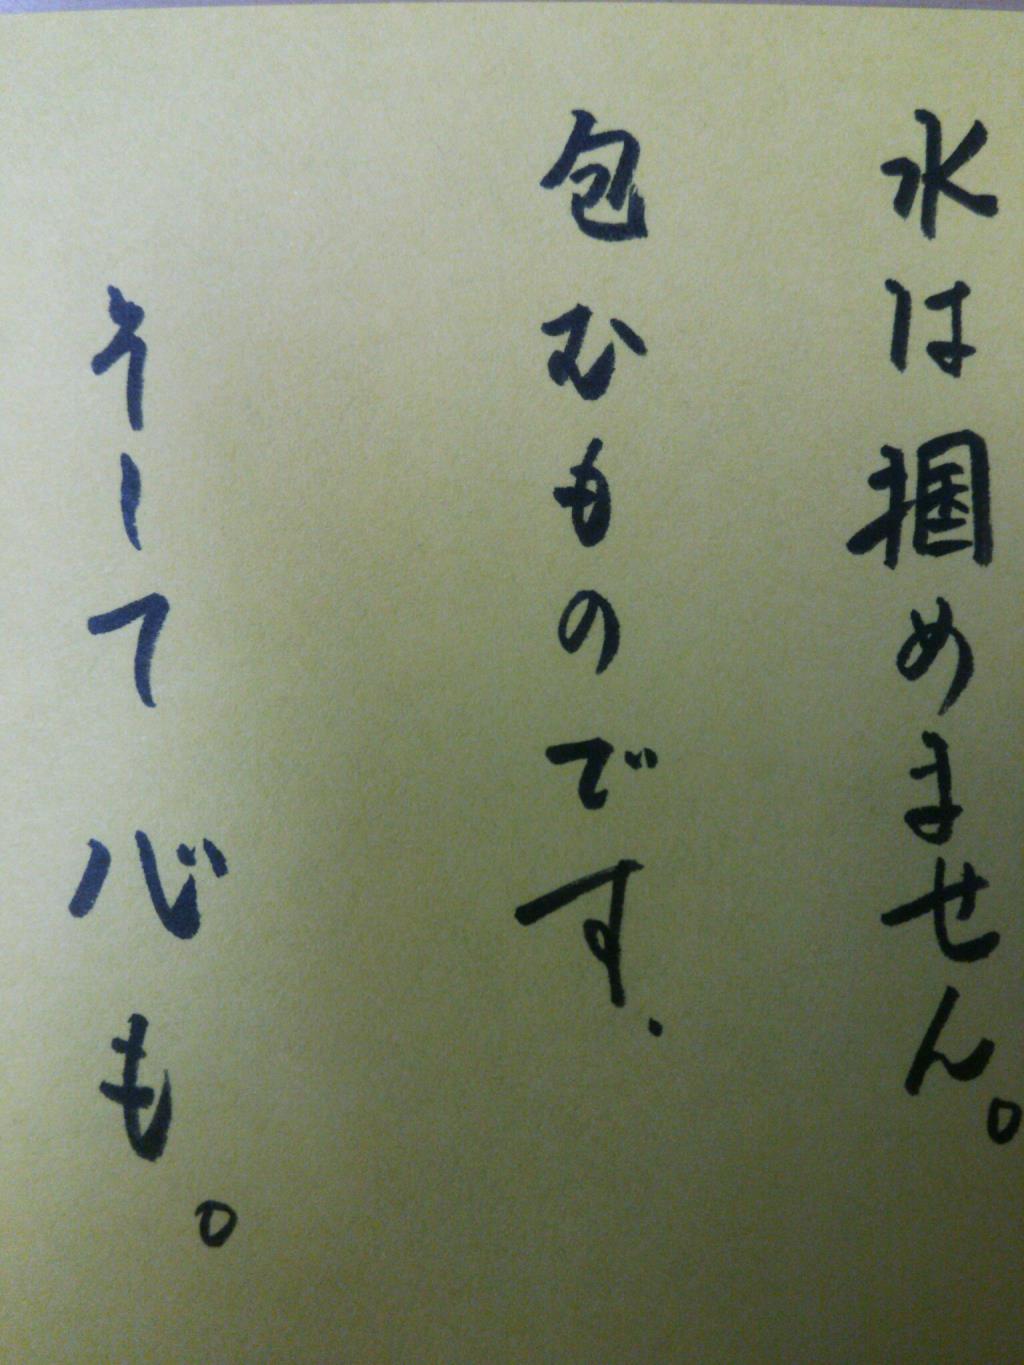 水は掴めません。
包むものです.
そして心も。